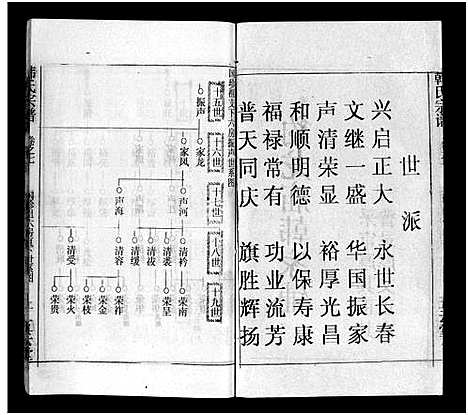 韩氏宗谱
世派
兴启正大 永世长春
文继一盛 华国振家
声清荣显 裕厚光昌
和顺明德 以保寿康
福禄常有 功业流芳
普天同庆 旗胜辉扬
下六房振声世系图
十五世
振声
十六世
家龙
家凤
十七世
声河
声海
十八世
清衿
清裁
清缓
清容
清受
十九世
荣南
荣呈
荣祚
荣金
荣枝
荣火
荣贵
韩氏宗谱